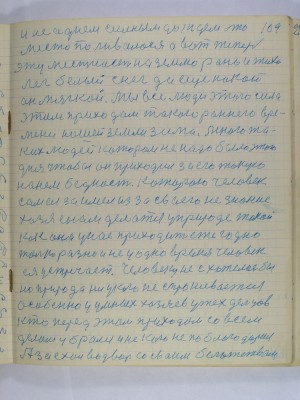 и не одним сильным дождем то 164
место поливалося а вот теперь
эту местность на землю рано и тихо
лег белый снег да еще какой
он пухкой. Мы все люди этого села
этим приходом такого раннего вре-
мени нашей земли зима. Много та-
ких людей которым не надо было того
дня чтобы он приходил за его только
на нем бедность. Которого человек
сам заимел из за своего не знание
хозяевам делается в природе такой
как она у нас приходит ежегодно
только разно и не в одно время человек
ее встречает. Человеку не хотелося бы
но природа ни у кого не спрашивается
особенно у умных хозяев у тех дедов
кто перед этим приходом со всем
делом убрали и не кого не поблагодарил
А заехал во двор со своим богатством